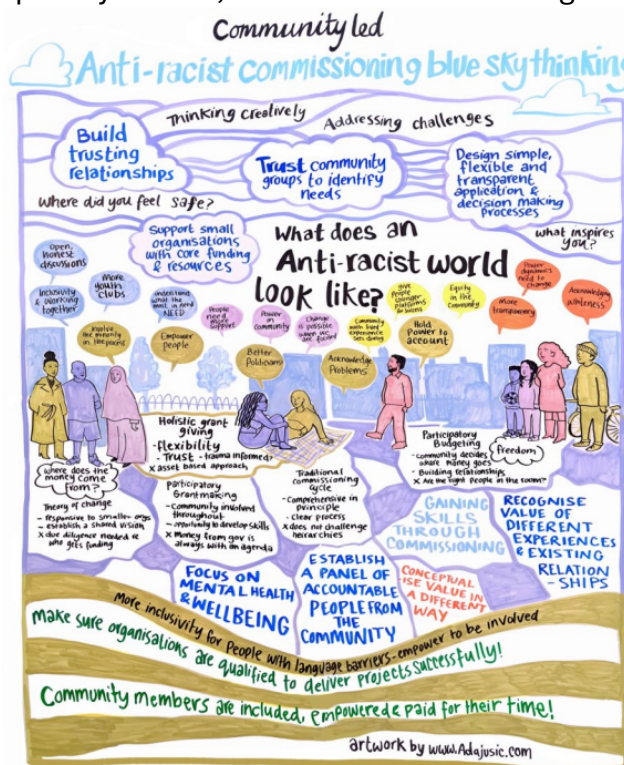 Community led
Anti-racist commissioning blue sky thinking
Thinking creatively
Addressing challenges
Build
trusting
relationships
Trust community
groups to identify
needs
Design simple,
flexible and
transparent
application &
decision making
processes
Where did you feel safe?
Support small
organisations
with core funding
& resources
What does an
Anti-racist world
look like?
what inspires
you?
Open,
honest
discussions
More
youth
clubs
Inclusivity
& working
together
understand
what the
NEED
Involve
the minority
in the
People
need
support
Empower
people
Power
in
community
Change
is possible
when we
are
Community
with lived
experience
Give
People
platforms
Equity
in the
Community
Power
dynamics
need to
change
More
transparency
Acknowledging
Hold
Power to
account
Better
Politicians
Acknowledge
Problems
Holistic grant
giving
- flexibility
- Trust - trauma informed?
x asset based approach
where does the
money come
from?
Theory of change
- responsive to smaller orgs
- establish a shared vision
x due diligence needed re
who gets funding
Participatory
Grantmaking
- Community involved
throughout
- opportunity to develop skills
x Money from gov is
always with an agenda
Traditional
commissioning
cycle
- Comprehensive in
principle
- Clear process
x does not challenge
heirarchies
Participatory
Budgeting
- community decides
where money goes
- Building relationships
x Are the right People in the room?
freedom
GAINING
SKILLS
THROUGH
COMMISSIONING
RECOGNISE
VALUE OF
DIFFERENT
EXPERIENCES
& EXISTING
RELATION
-SHIPS
FOCUS ON
MENTAL HEALTH
& WELLBEING
ESTABLISH
A PANEL OF
ACCOUNTABLE
PEOPLE FROM
THE
COMMUNITY
CONCEPTUAL
ISE VALUE IN
A DIFFERENT
WAY
More inclusivity for People with language barriers - empower to be involved
make sure organisations are qualified to deliver projects successfully!
Community members are included, empowered & paid for their time!
artwork by www.Adajusic.com